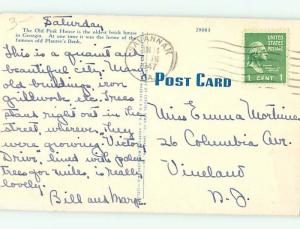 3-
Saturday
The Old Pink House is the oldest brick house
in Georgia. At one time it was the home of the
famous old Planter's Bank.
29083
This is a quaint and
beautiful city. Many
old buildings, iron
grillwork etc. Trees
stand right out in the
street, wherever they
were growing. Victory
Drive, lined with palm
trees for miles, is really
lovely.
Bill and Marge
SAVANNAH
POST CARD
1¢
1 CENT 1
Miss Emma Mortimer
26 Columbia Ave.
Vineland
N. J.